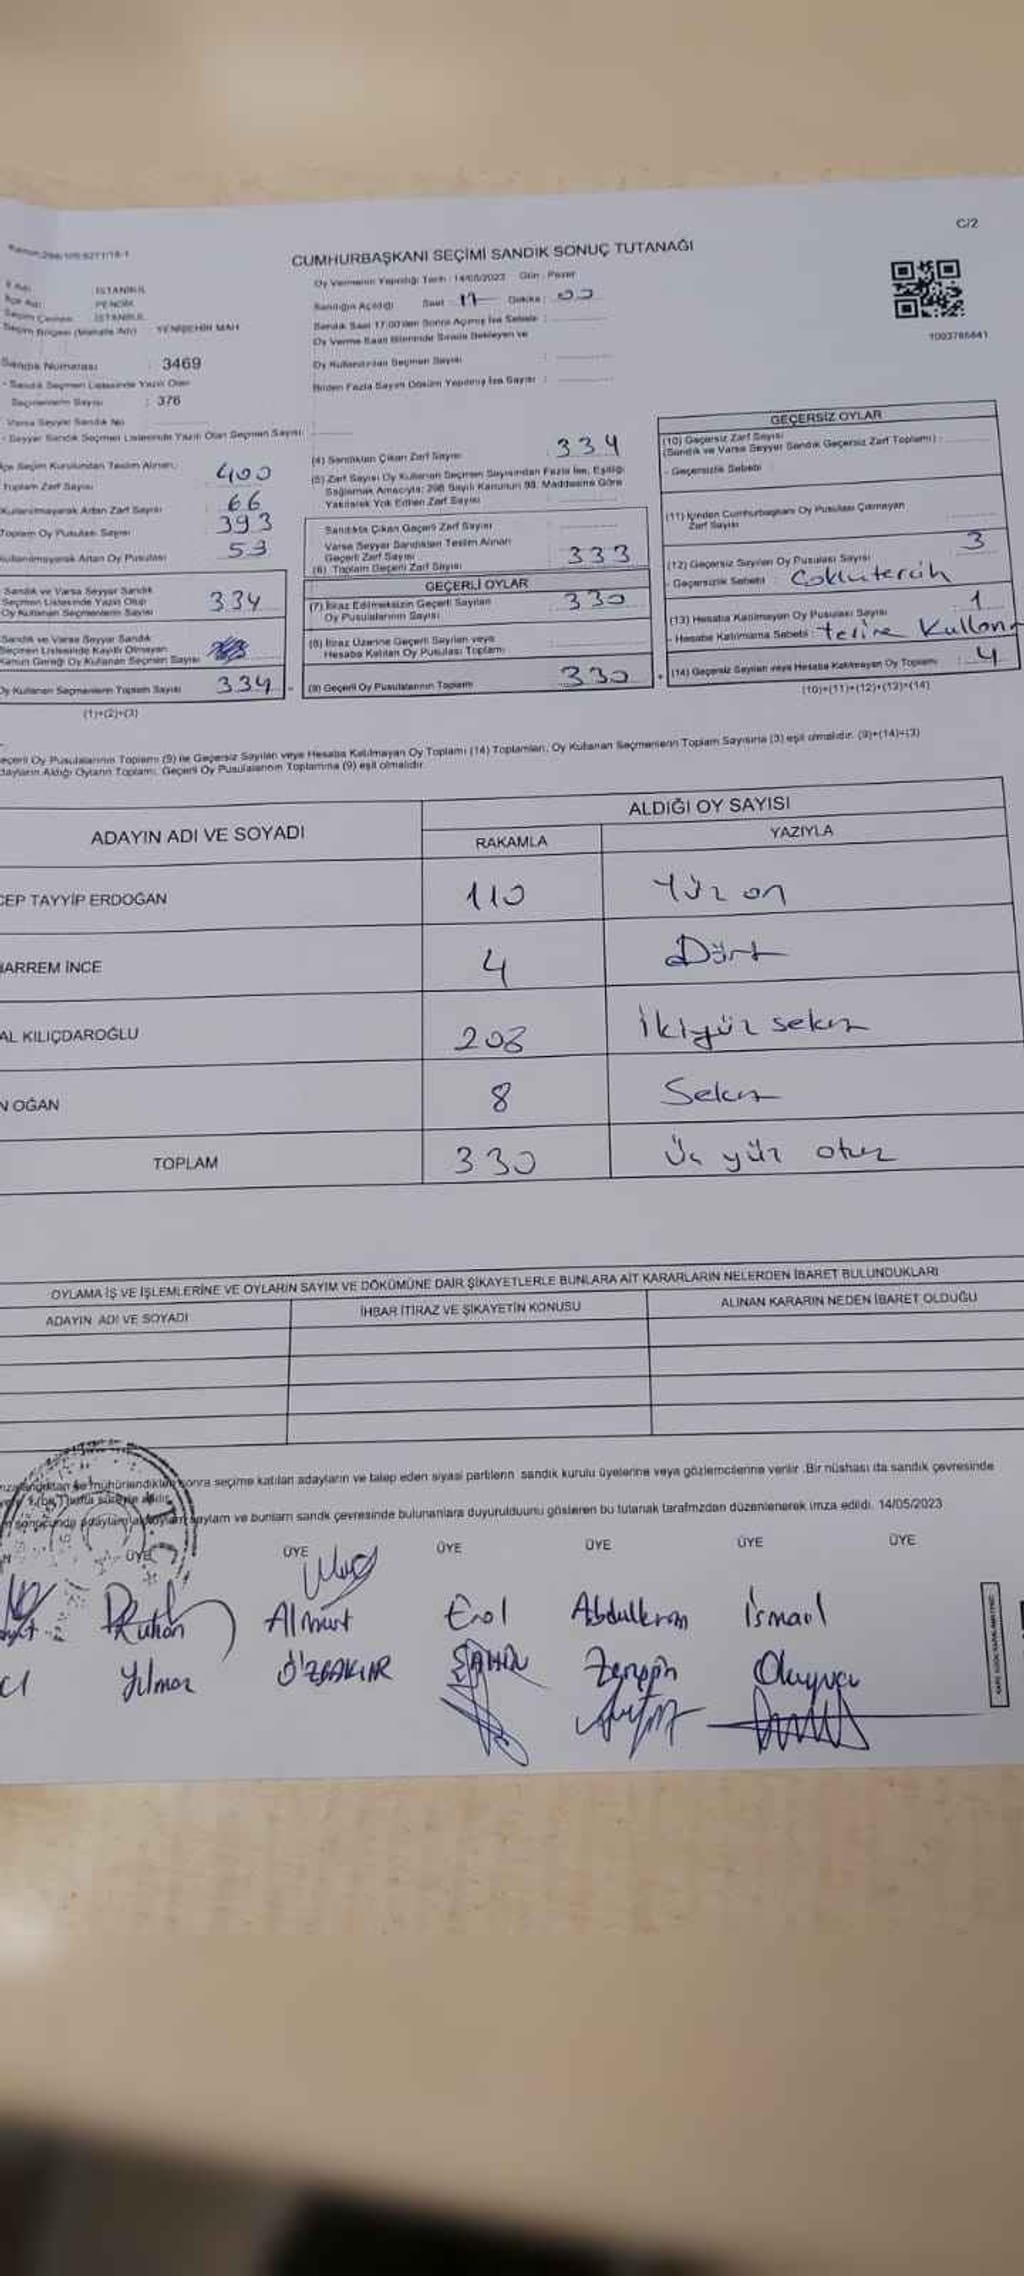 C/2
CUMHURBAŞKANI SEÇİMİ SANDIK SONUÇ TUTANAĞI
Oy Vermenin Yapıldığı Tarih : 14/05/2023 Gün : Pazar
İSTANBUL
PENDİK
İSTANBUL
Seçim Bölgesi (Mahalle Adı) YENİŞEHİR MAH
Sandığın Açıldığı Saat : 17 Dakika : 00
Sandık Saat 17:00'den Sonra Açılmış İse Sebebi :
Oy Verme Saati Bitiminde Sırada Bekleyen ve
Oy Kullandırılan Seçmen Sayısı :
Birden Fazla Sayım Döküm Yapılmış İse Sayısı :
1003785841
Sandık Numarası : 3469
- Sandık Seçmen Listesinde Yazılı Olan
Seçmenlerin Sayısı : 376
Varsa Seyyar Sandık No
- Seyyar Sandık Seçmen Listesinde Yazılı Olan Seçmen Sayısı
İlçe Seçim Kurulundan Teslim Alınan
Toplam Zarf Sayısı 400
Kullanılmayarak Artan Zarf Sayısı 66
Toplam Oy Pusulası Sayısı 393
Kullanılmayarak Artan Oy Pusulası 53
Sandık ve Varsa Seyyar Sandık
Seçmen Listesinde Yazılı Olup
Oy Kullanan Seçmenlerin Sayısı 334
Sandık ve Varsa Seyyar Sandık
Seçmen Listesinde Kayıtlı Olmayan
Kanun Gereği Oy Kullanan Seçmen Sayısı
Oy Kullanan Seçmenlerin Toplam Sayısı 334
(1)+(2)=(3)
(4) Sandıktan Çıkan Zarf Sayısı 334
(5) Zarf Sayısı Oy Kullanan Seçmen Sayısından Fazla İse, Eşitliği
Sağlamak Amacıyla; 298 Sayılı Kanunun 98. Maddesine Göre
Yakılarak Yok Edilen Zarf Sayısı
Sandıkta Çıkan Geçerli Zarf Sayısı
Varsa Seyyar Sandıktan Teslim Alınan
Geçerli Zarf Sayısı
(6) Toplam Geçerli Zarf Sayısı 333
GEÇERLİ OYLAR
(7) İtiraz Edilmeksizin Geçerli Sayılan
Oy Pusulalarının Sayısı 330
(8) İtiraz Üzerine Geçerli Sayılan veya
Hesaba Katılan Oy Pusulası Toplamı
(9) Geçerli Oy Pusulalarının Toplamı 330
GEÇERSİZ OYLAR
(10) Geçersiz Zarf Sayısı
(Sandık ve Varsa Seyyar Sandık Geçersiz Zarf Toplamı) :
- Geçersizlik Sebebi :
(11) İçinden Cumhurbaşkanı Oy Pusulası Çıkmayan
Zarf Sayısı
(12) Geçersiz Sayılan Oy Pusulası Sayısı 3
- Geçersizlik Sebebi : Çoklu tercih
(13) Hesaba Katılmayan Oy Pusulası Sayısı 1
- Hesaba Katılmama Sebebi :
(14) Geçersiz Sayılan veya Hesaba Katılmayan Oy Toplamı : 4
(10)+(11)+(12)+(13)=(14)
Geçerli Oy Pusulalarının Toplamı (9) ile Geçersiz Sayılan veya Hesaba Katılmayan Oy Toplamı (14) Toplamları, Oy Kullanan Seçmenlerin Toplam Sayısına (3) eşit olmalıdır. (9)+(14)=(3)
Adayların Aldığı Oyların Toplamı, Geçerli Oy Pusulalarının Toplamına (9) eşit olmalıdır.
ADAYIN ADI VE SOYADI
ALDIĞI OY SAYISI
RAKAMLA YAZIYLA
CEP TAYYİP ERDOĞAN 110 Yüz on
HARREM İNCE 4 Dört
AL KILIÇDAROĞLU 208 İkiyüz sekiz
N OĞAN 8 Sekiz
TOPLAM 330 Üç yüz otuz
OYLAMA İŞ VE İŞLEMLERİNE VE OYLARIN SAYIM VE DÖKÜMÜNE DAİR ŞİKAYETLERLE BUNLARA AİT KARARLARIN NELERDEN İBARET BULUNDUKLARI
ADAYIN ADI VE SOYADI İHBAR İTİRAZ VE ŞİKAYETİN KONUSU ALINAN KARARIN NEDEN İBARET OLDUĞU
sonra seçime katılan adayların ve talep eden siyasi partilerin sandık kurulu üyelerine veya gözlemcilerine verilir. Bir nüshası da sandık çevresinde
ve bunların sandık çevresinde bulunanlara duyurulduğunu gösteren bu tutanak tarafımızdan düzenlenerek imza edildi. 14/05/2023
ÜYE ÜYE ÜYE ÜYE ÜYE ÜYE
Almurt Erol Abdulkerim İsmail
Yılmaz ÖZBAKIR ŞAHİN Zengin Okuyucu